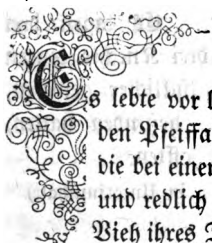 Es lebte vor
den Pfeiffa
die bei einer
und redlich
Vieh ihres